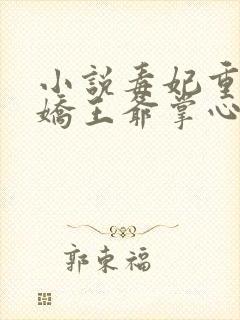 小說毒妃重
嬌王爺掌心
郭東福